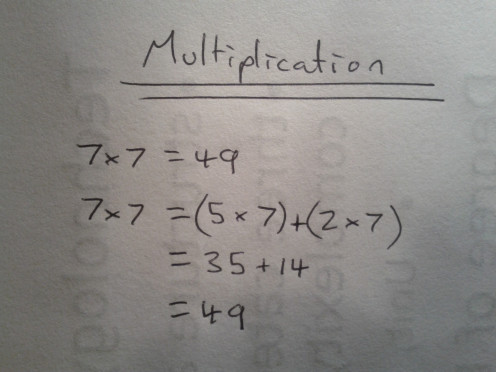 Multiplication
7×7 = 49
7×7 = (5 × 7)+(2 × 7)
= 35 + 14
= 49